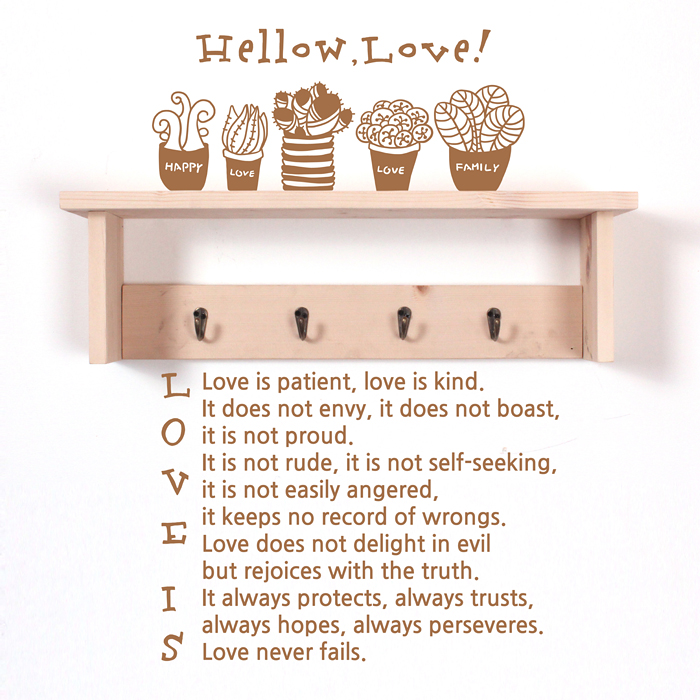 Hellow, Love!
HAPPY
LOVE
LOVE
FAMILY
LOVE IS
Love is patient, love is kind.
It does not envy, it does not boast,
it is not proud.
It is not rude, it is not self-seeking,
it is not easily angered,
it keeps no record of wrongs.
Love does not delight in evil
but rejoices with the truth.
It always protects, always trusts,
always hopes, always perseveres.
Love never fails.